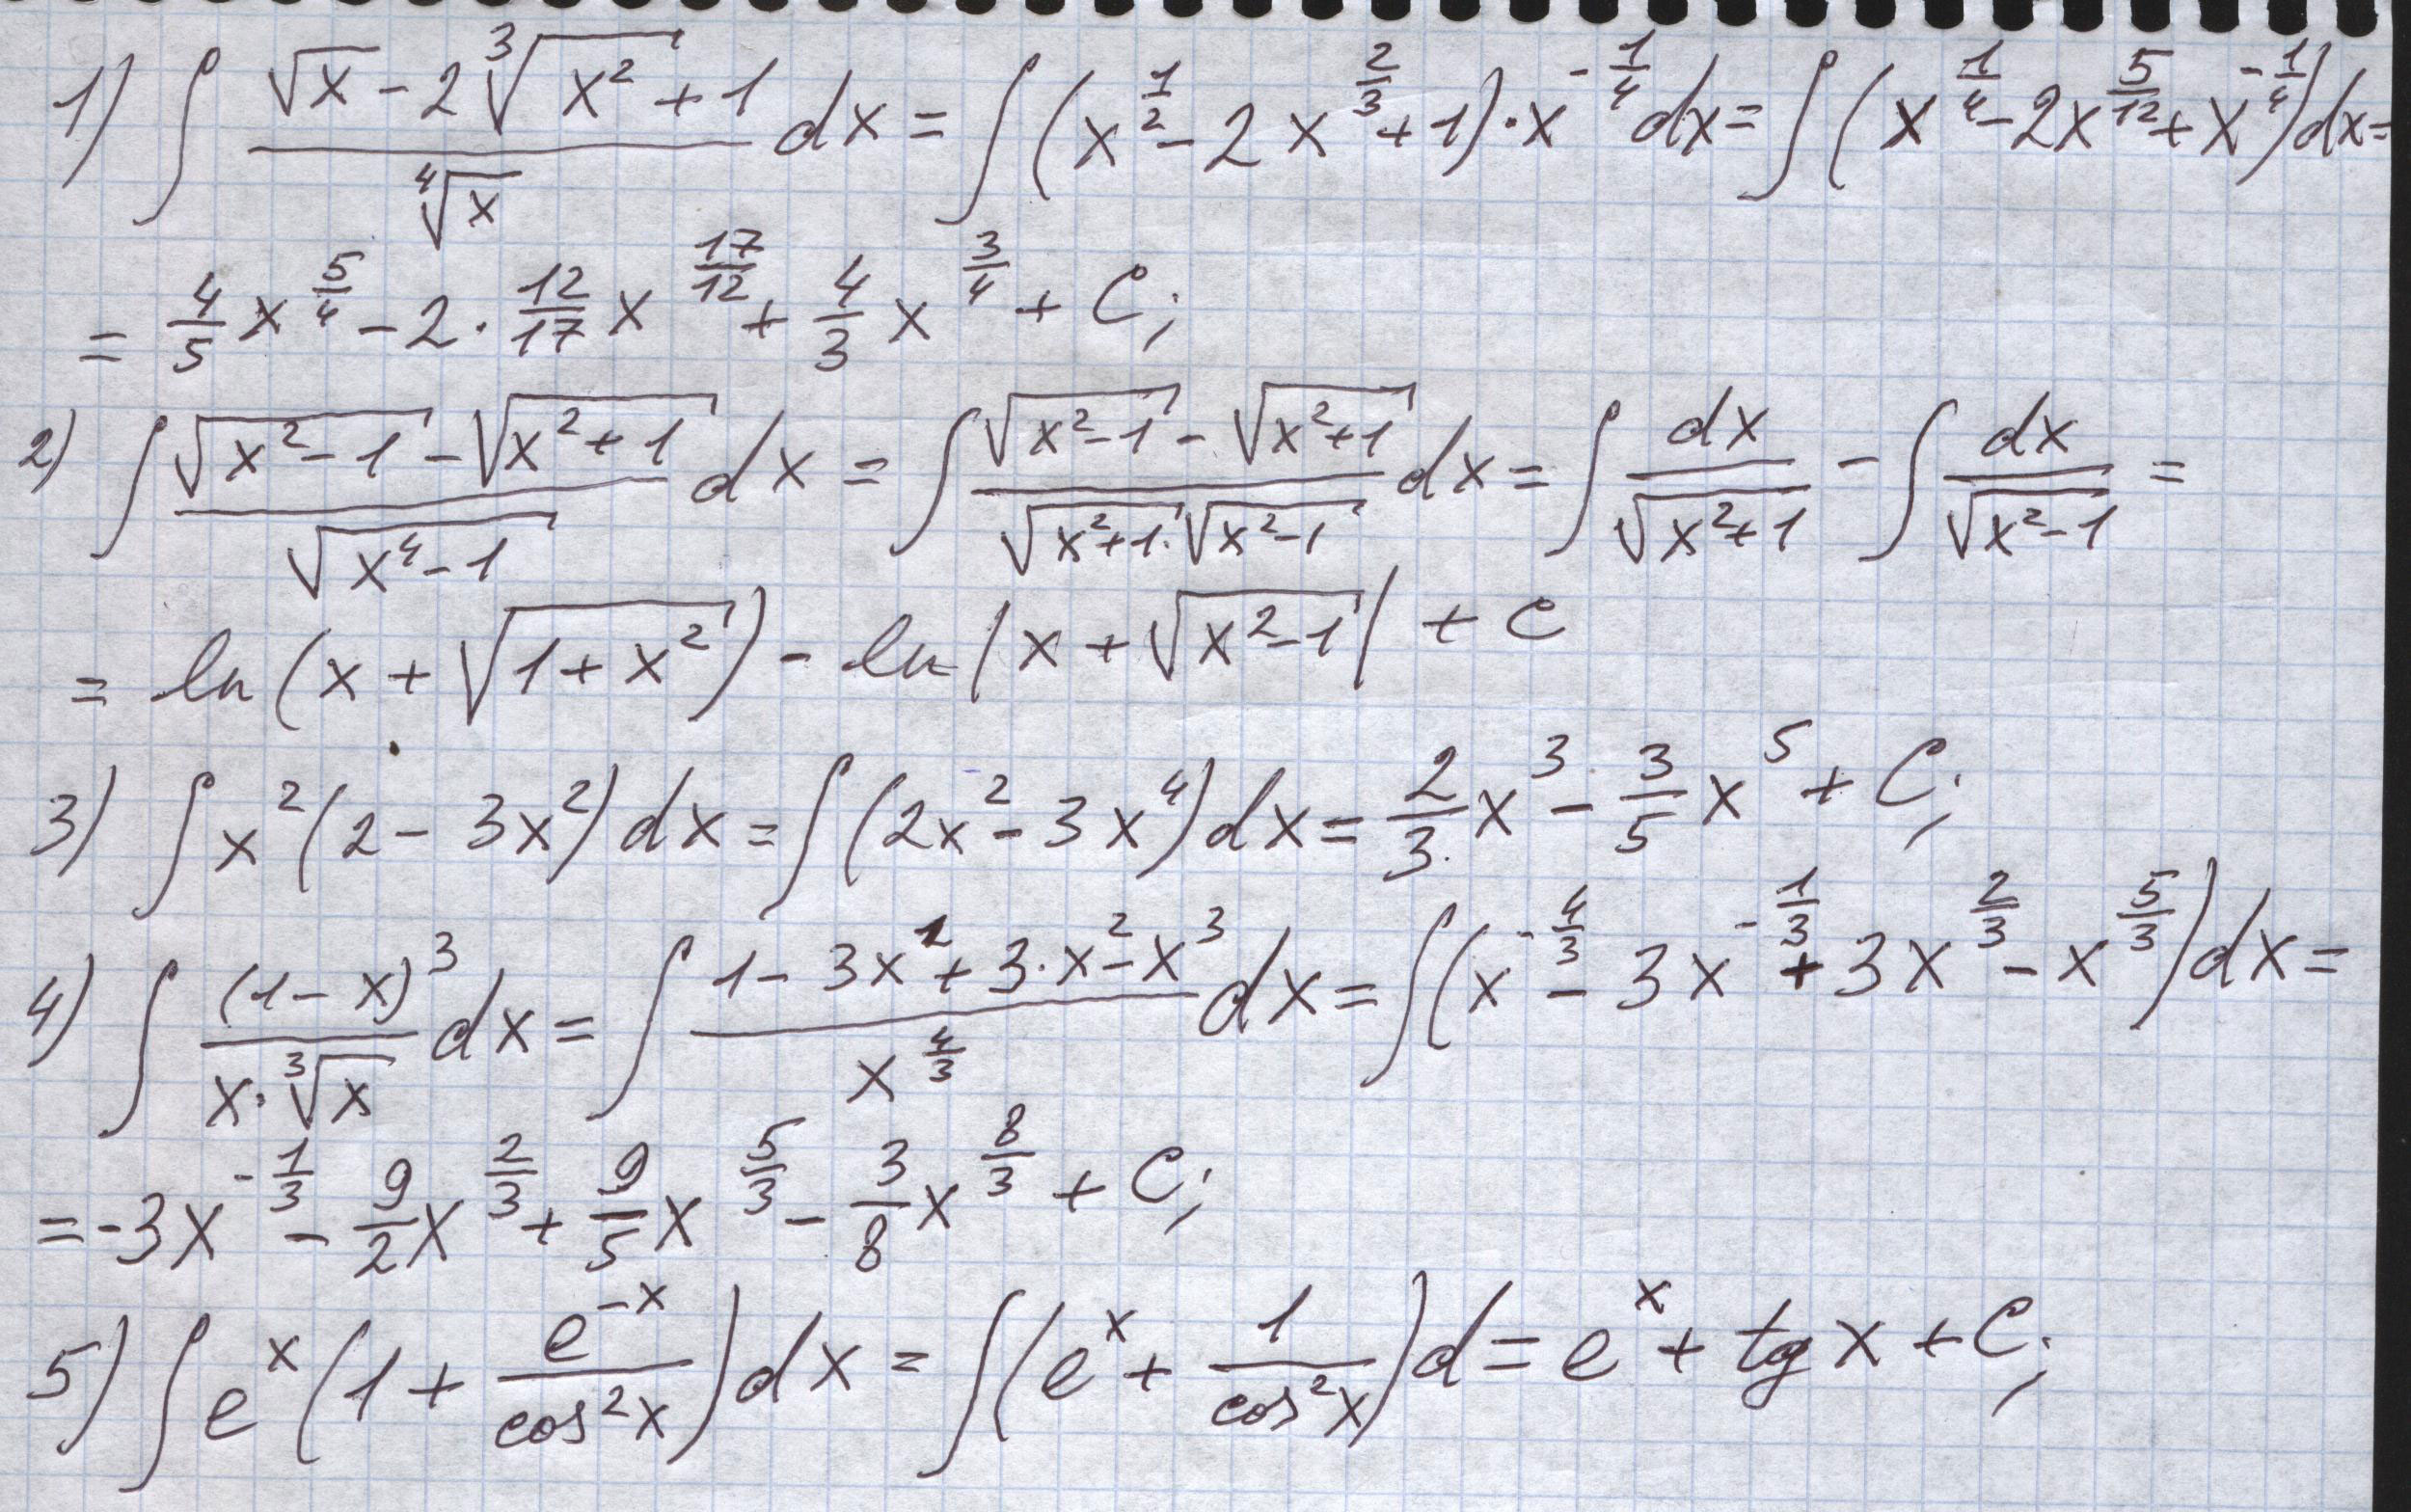 1) ∫ (√x - 2∛(x²) + 1)/(⁴√x) dx = ∫ (x^(1/2) - 2x^(2/3) + 1)·x^(-1/4) dx = ∫ (x^(1/4) - 2x^(5/12) + x^(-1/4)) dx =
= 4/5 x^(5/4) - 2·12/17 x^(17/12) + 4/3 x^(3/4) + C;
2) ∫ (√(x²-1) - √(x²+1))/√(x⁴-1) dx = ∫ (√(x²-1) - √(x²+1))/(√(x²+1)·√(x²-1)) dx = ∫ dx/√(x²+1) - ∫ dx/√(x²-1) =
= ln(x + √(1+x²)) - ln|x + √(x²-1)| + C
3) ∫ x²(2 - 3x²) dx = ∫ (2x² - 3x⁴) dx = 2/3 x³ - 3/5 x⁵ + C;
4) ∫ (1-x)³/(x·∛x) dx = ∫ (1 - 3x¹ + 3·x² - x³)/x^(4/3) dx = ∫ (x^(-4/3) - 3x^(-1/3) + 3x^(2/3) - x^(5/3)) dx =
= -3x^(-1/3) - 9/2 x^(2/3) + 9/5 x^(5/3) - 3/8 x^(8/3) + C;
5) ∫ e^x (1 + e^(-x)/cos²x) dx = ∫ (e^x + 1/cos²x) d = e^x + tg x + C;